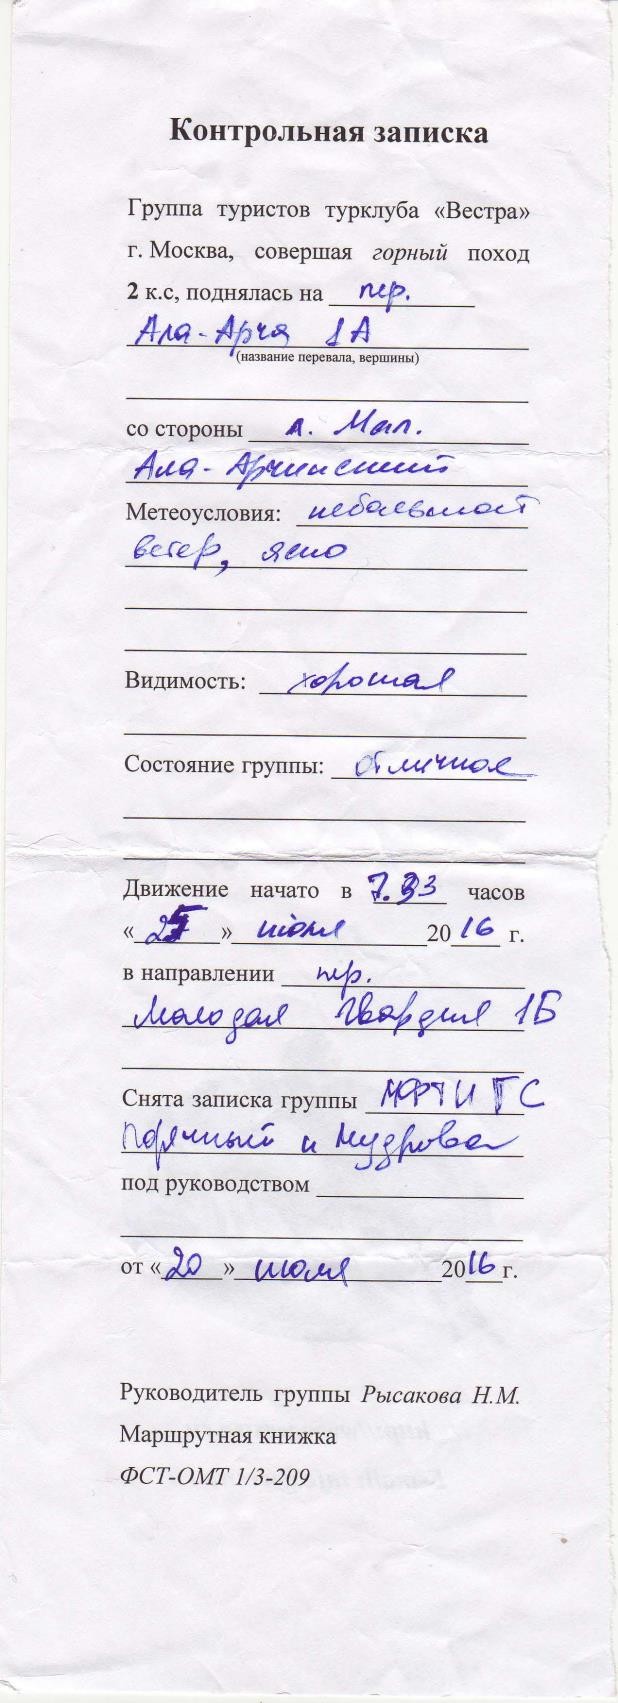 Контрольная записка
Группа туристов турклуба «Вестра»
г. Москва, совершая горный поход
2 к.с, поднялась на пер.
Ала-Арча 1А
(название перевала, вершины)
со стороны л. Мал.
Ала-Арчинский
Метеоусловия: небольшой
ветер, ясно
Видимость: хорошая
Состояние группы: отличное
Движение начато в часов
«25» июля 2016 г.
в направлении пер.
Молодая Гвардия 1Б
Снята записка группы МФТИ ГС
и Мудрова
под руководством
от «20» июля 2016г.
Руководитель группы Рысакова Н.М.
Маршрутная книжка
ФСТ-ОМТ 1/3-209